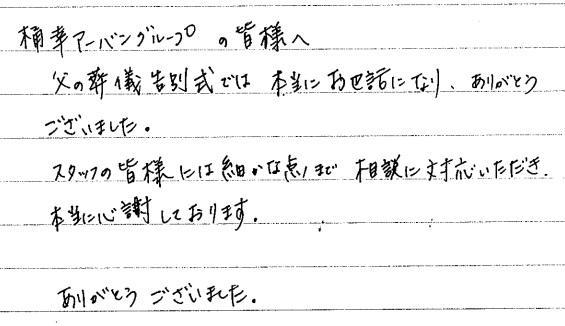 桶幸アーバングループの皆様へ
父の葬儀告別式では本当にお世話になり、ありがとう
ございました。
スタッフの皆様には細かな点まで相談に対応いただき、
本当に心謝しております。
ありがとうございました。